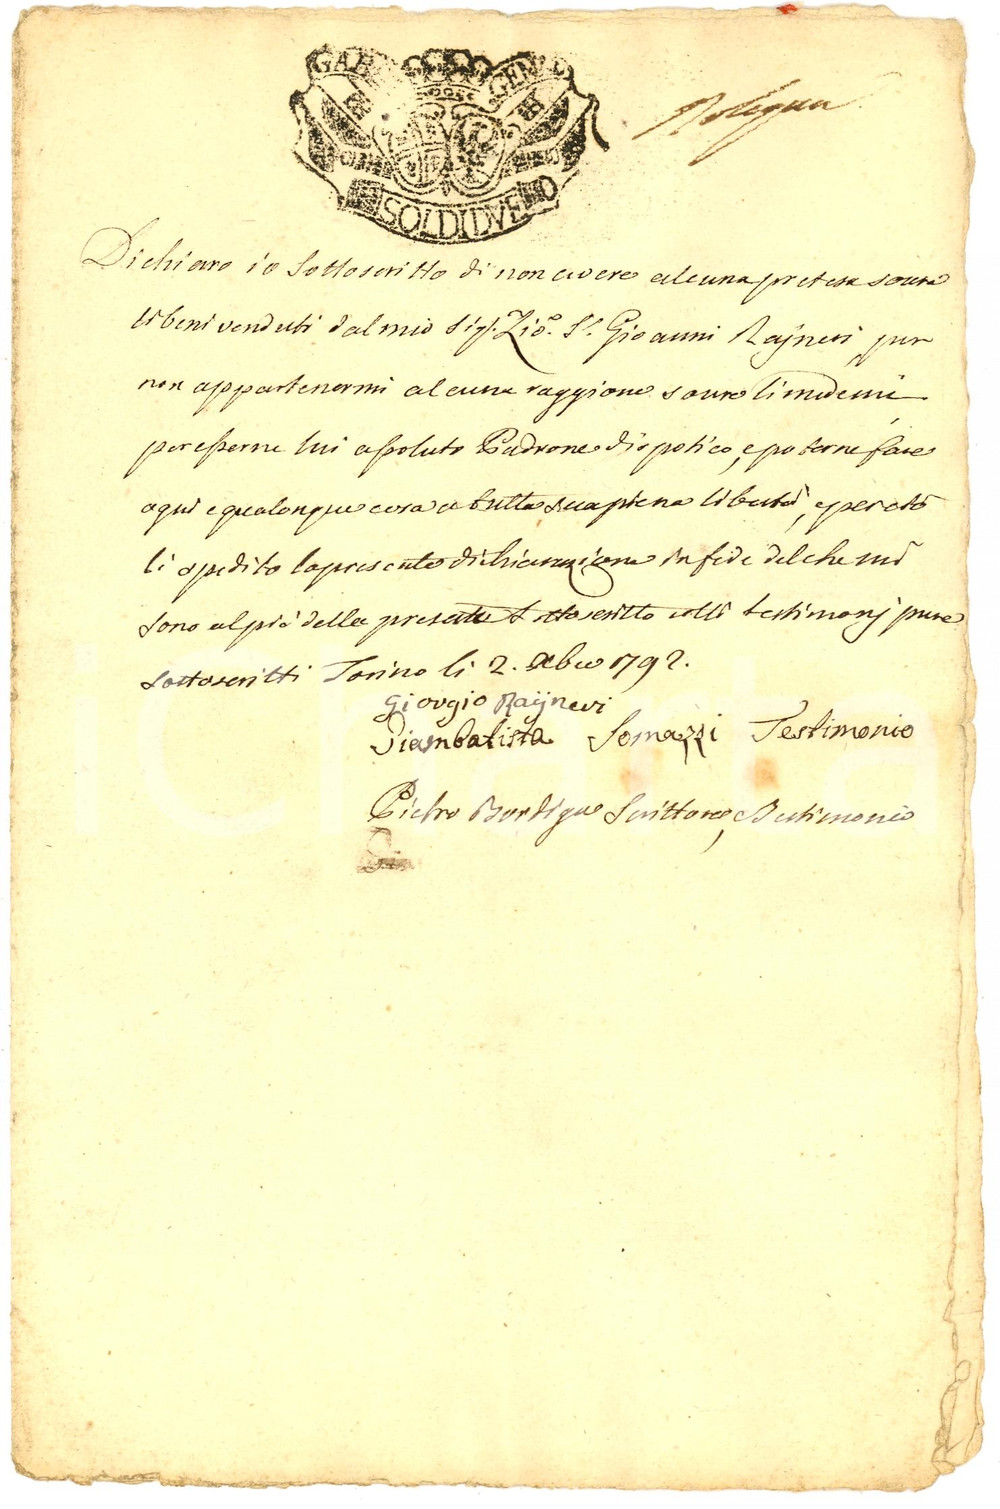 SOLDI DVE
Dichiaro io Sottoscritto di non avere alcuna pretesa soura
li beni venduti dal mio Sig.r Zio. Sr. Giovanni Raÿneri pur
non appartenermi alcuna raggione soura li medemi
per esserne lui assoluto Padrone dispotico, e poterne fare
ogni e qualonque cosa a tutta sua piena libertà, e per ciò
li spedito la presente dichiarazione in fede del che mi
sono al piè della presente sottoscritto colli testimonj pure
sottoscritti Torino li 2. Xbre 1792.
Giorgio Raÿneri
Giambatista Somazzi Testimonio
Pietro Bordiga Scrittore, Testimonio